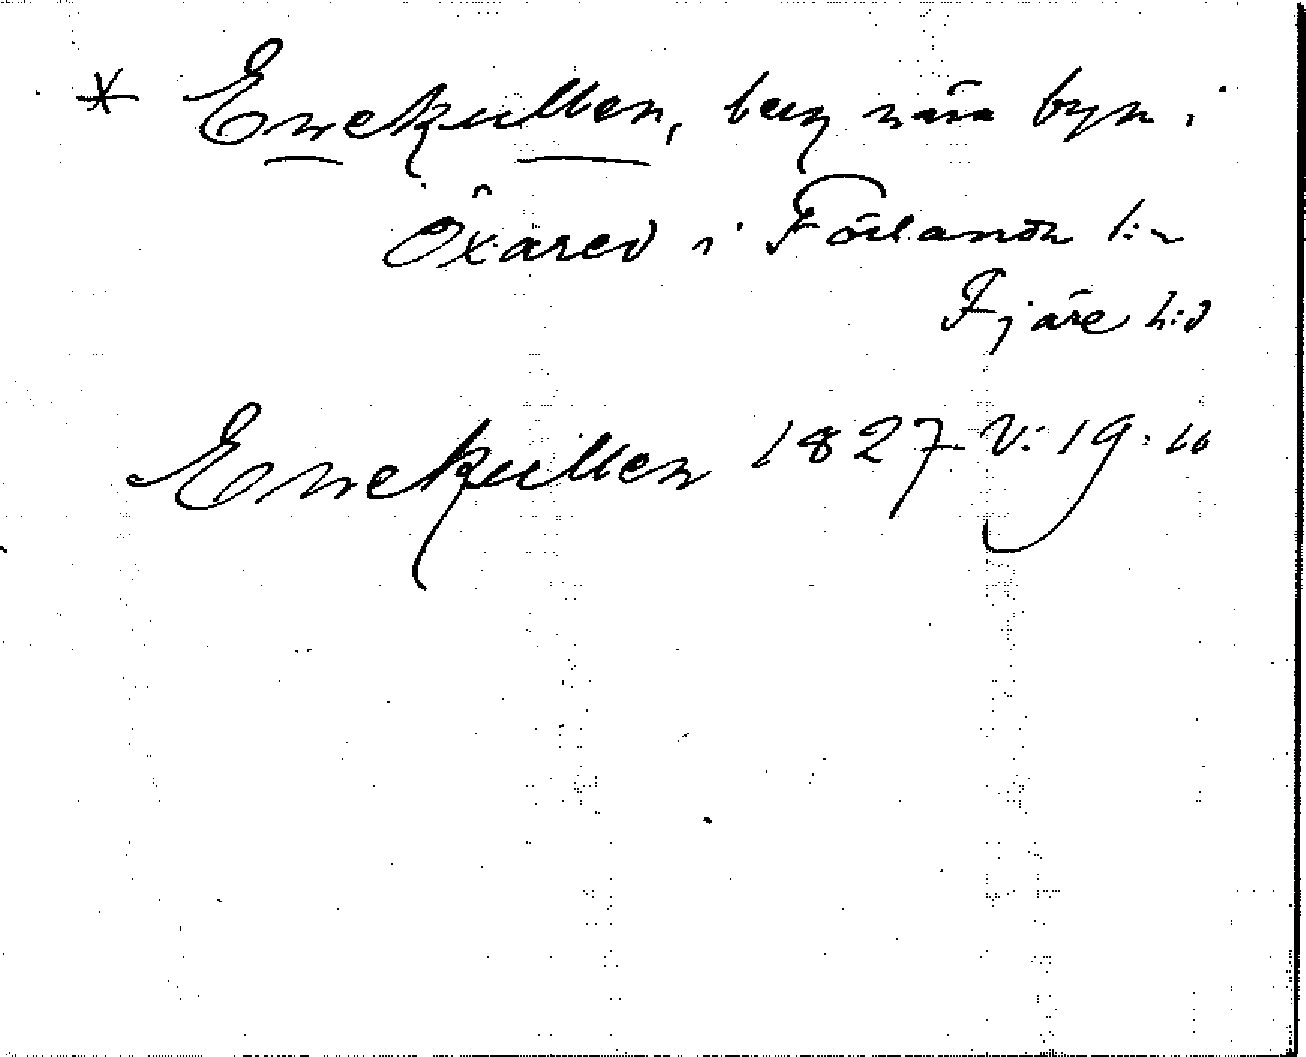 * Enekullen, berg nära byn i
Öxared i Förlanda s:n
Fjäre h:d
Enekullen 1827 V: 19: 10